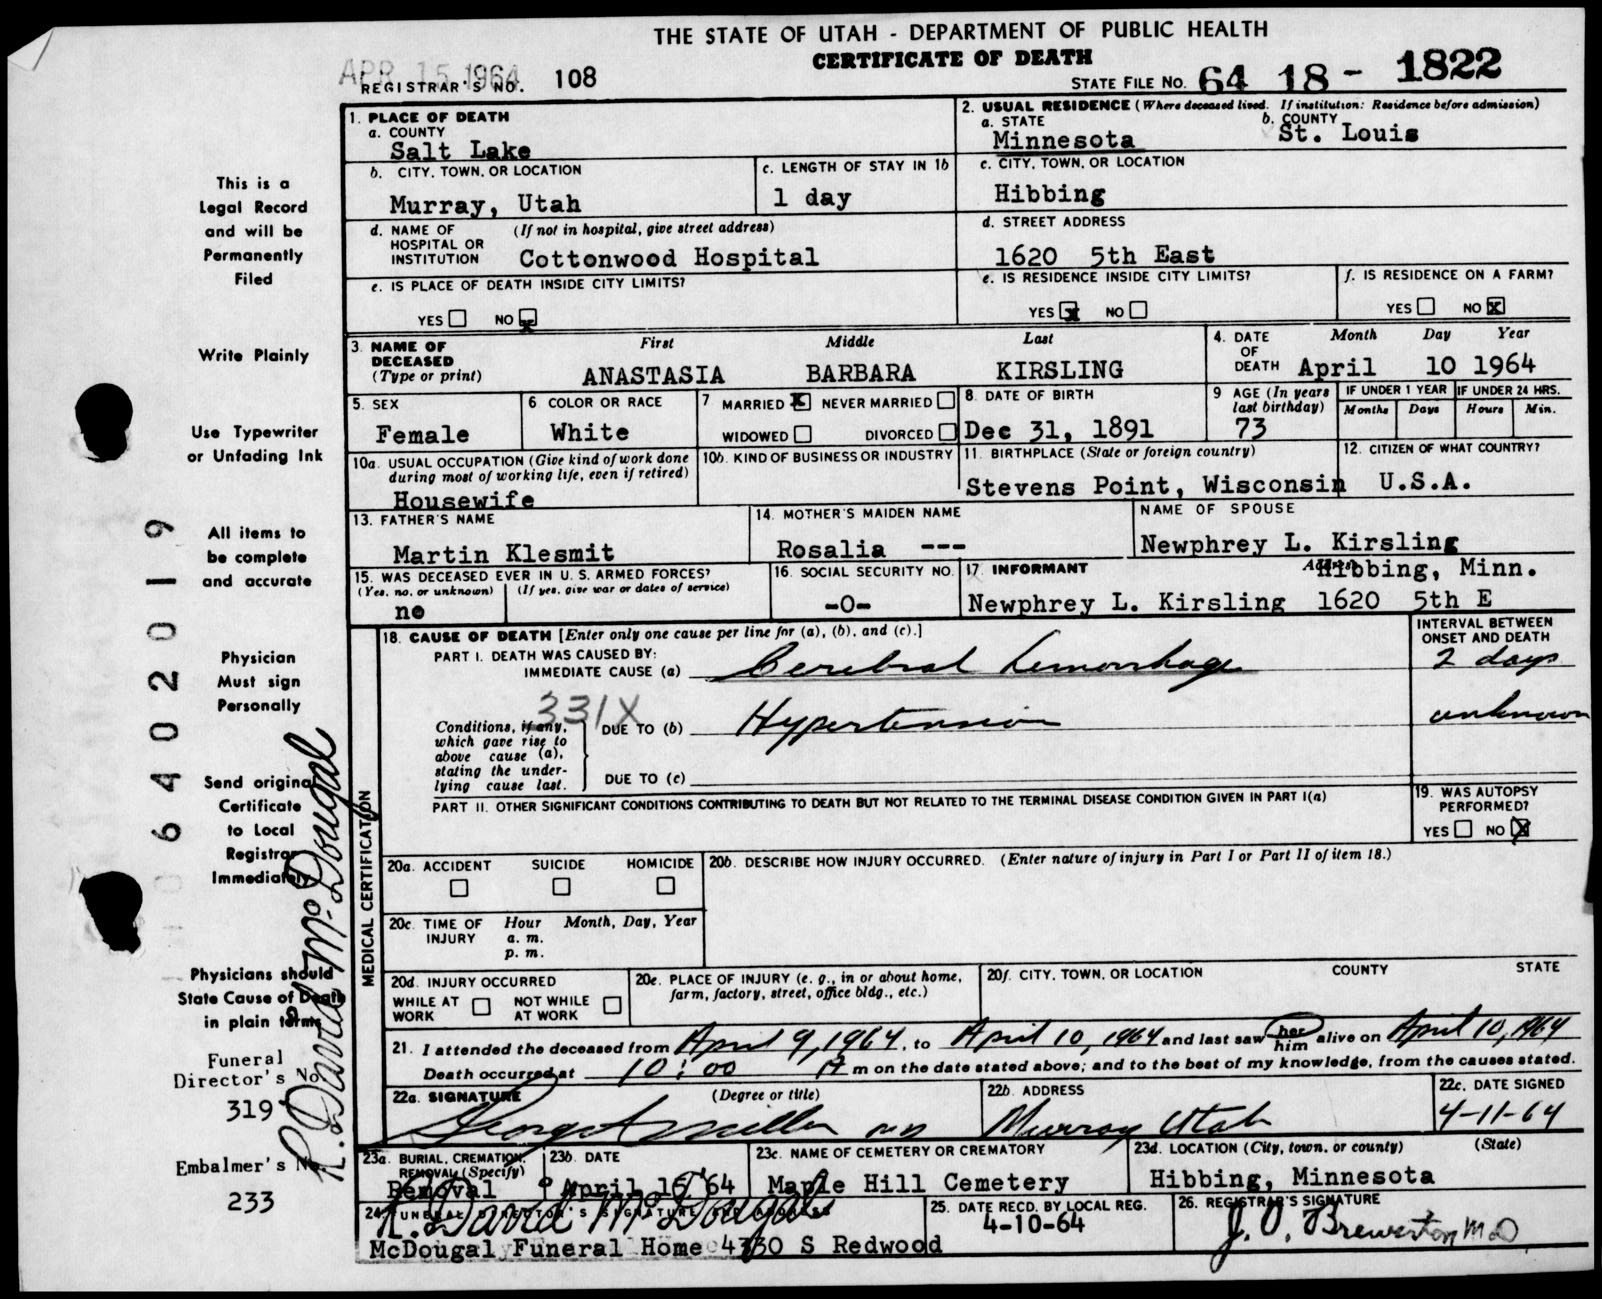 THE STATE OF UTAH - DEPARTMENT OF PUBLIC HEALTH
CERTIFICATE OF DEATH
APR 15 1964
REGISTRAR'S NO. 108
STATE FILE NO. 64 18 - 1822
This is a
Legal Record
and will be
Permanently
Filed
Write Plainly
Use Typewriter
or Unfading Ink
All items to
be complete
and accurate
Physician
Must sign
Personally
Send original
Certificate
to Local
Registrar
Immediately
Physicians should
State Cause of Death
in plain terms
Funeral
Director's No.
319
Embalmer's No.
233
6402019
R. David McDougal
1. PLACE OF DEATH
a. COUNTY
Salt Lake
2. USUAL RESIDENCE (Where deceased lived. If institution: Residence before admission)
a. STATE
Minnesota
b. COUNTY
St. Louis
b. CITY, TOWN, OR LOCATION
Murray, Utah
c. LENGTH OF STAY IN 1b
1 day
c. CITY, TOWN, OR LOCATION
Hibbing
d. NAME OF HOSPITAL OR INSTITUTION (If not in hospital, give street address)
Cottonwood Hospital
d. STREET ADDRESS
1620 5th East
e. IS PLACE OF DEATH INSIDE CITY LIMITS?
YES NO X
e. IS RESIDENCE INSIDE CITY LIMITS?
YES X NO
f. IS RESIDENCE ON A FARM?
YES NO X
3. NAME OF DECEASED (Type or print)
First Middle Last
ANASTASIA BARBARA KIRSLING
4. DATE OF DEATH
Month Day Year
April 10 1964
5. SEX
Female
6 COLOR OR RACE
White
7 MARRIED X NEVER MARRIED
WIDOWED DIVORCED
8. DATE OF BIRTH
Dec 31, 1891
9 AGE (In years last birthday)
73
IF UNDER 1 YEAR
Months Days
IF UNDER 24 HRS.
Hours Min.
10a. USUAL OCCUPATION (Give kind of work done during most of working life, even if retired)
Housewife
10b. KIND OF BUSINESS OR INDUSTRY
11. BIRTHPLACE (State or foreign country)
Stevens Point, Wisconsin
12. CITIZEN OF WHAT COUNTRY?
U.S.A.
13. FATHER'S NAME
Martin Klesmit
14. MOTHER'S MAIDEN NAME
Rosalia ---
NAME OF SPOUSE
Newphrey L. Kirsling
15. WAS DECEASED EVER IN U. S. ARMED FORCES?
(Yes, no, or unknown) (If yes, give war or dates of service)
no
16. SOCIAL SECURITY NO.
-0-
17. INFORMANT Address
Hibbing, Minn.
Newphrey L. Kirsling 1620 5th E
MEDICAL CERTIFICATION
18. CAUSE OF DEATH [Enter only one cause per line for (a), (b), and (c).]
INTERVAL BETWEEN ONSET AND DEATH
PART I. DEATH WAS CAUSED BY:
IMMEDIATE CAUSE (a) Cerebral hemorrhage 2 days
331X
Conditions, if any, which gave rise to above cause (a), stating the underlying cause last.
DUE TO (b) Hypertension unknown
DUE TO (c)
PART II. OTHER SIGNIFICANT CONDITIONS CONTRIBUTING TO DEATH BUT NOT RELATED TO THE TERMINAL DISEASE CONDITION GIVEN IN PART I(a)
19. WAS AUTOPSY PERFORMED?
YES NO X
20a. ACCIDENT SUICIDE HOMICIDE
20b. DESCRIBE HOW INJURY OCCURRED. (Enter nature of injury in Part I or Part II of item 18.)
20c. TIME OF INJURY Hour Month, Day, Year
a. m.
p. m.
20d. INJURY OCCURRED
WHILE AT WORK NOT WHILE AT WORK
20e. PLACE OF INJURY (e. g., in or about home, farm, factory, street, office bldg., etc.)
20f. CITY, TOWN, OR LOCATION COUNTY STATE
21. I attended the deceased from April 9, 1964, to April 10, 1964 and last saw her him alive on April 10, 1964
Death occurred at 10:00 A m on the date stated above; and to the best of my knowledge, from the causes stated.
22a. SIGNATURE (Degree or title)
George A Miller MD
22b. ADDRESS
Murray Utah
22c. DATE SIGNED
4-11-64
23a. BURIAL, CREMATION, REMOVAL (Specify)
Removal
23b. DATE
April 15 '64
23c. NAME OF CEMETERY OR CREMATORY
Maple Hill Cemetery
23d. LOCATION (City, town, or county) (State)
Hibbing, Minnesota
24. FUNERAL DIRECTOR'S SIGNATURE AND ADDRESS
R. David McDougal
McDougal Funeral Home 4330 S Redwood
25. DATE RECD. BY LOCAL REG.
4-10-64
26. REGISTRAR'S SIGNATURE
J. O. Brewerton MD